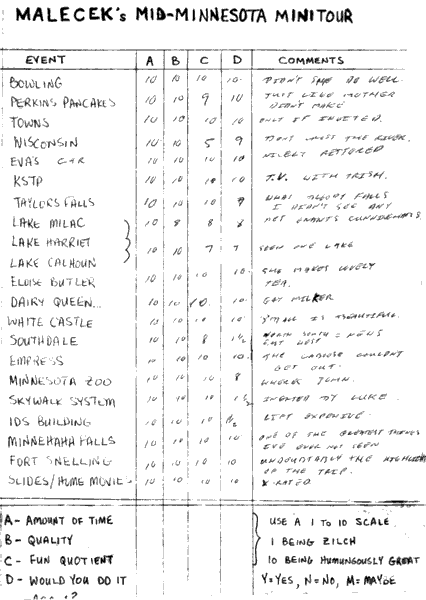 MALECEK'S MID-MINNESOTA MINITOUR
EVENT A B C D COMMENTS
BOWLING 10 10 10 10 DIDN'T SHE DO WELL.
PERKINS PANCAKES 10 10 9 10 JUST LIKE MOTHER
DIDN'T MAKE
TOWNS 10 10 10 10 ONLY IF INVITED.
WISCONSIN 10 10 5 9 DON'T MISS THE RIVER.
EVA'S CAR 10 10 10 10 NICELY RESTORED
KSTP 10 10 10 10 T.V. WITH TRISH.
TAYLORS FALLS 10 10 10 9 WHAT FALLS
I DIDN'T SEE ANY
LAKE MILAC 10 8 8 8 NET
LAKE HARRIET
LAKE CALHOUN 10 10 7 7 SEEN ONE LAKE
ELOISE BUTLER 10 10 10 10 SHE MAKES LOVELY
TEA.
DAIRY QUEEN... 10 10 10. 10 GAY MILKER
WHITE CASTLE 10 10 10 10 SMALL IS BEAUTIFUL.
SOUTHDALE 10 10 8 1½ NORTH SOUTH = NEWS
EAST WEST
EMPRESS 10 10 10 10 THE COULDN'T
GET OUT.
MINNESOTA ZOO 10 10 10 8 WHERE JOHN.
SKYWALK SYSTEM 10 10 10 1½ BY LUKE.
IDS BUILDING 10 10 10 1½ LIFT EXPENSIVE.
MINNEHAHA FALLS 10 10 10 10 ONE OF THE GREATEST THINGS
IVE EVER NOT SEEN
FORT SNELLING 10 10 10 10 UNDOUBTABLY THE HIGHLIGHT
OF THE TRIP.
SLIDES/HOME MOVIES 10 10 10 10 X-RATED.
A- AMOUNT OF TIME
B- QUALITY
C- FUN QUOTIENT
D- WOULD YOU DO IT
USE A 1 TO 10 SCALE
1 BEING ZILCH
10 BEING HUMUNGOUSLY GREAT
Y=YES, N=NO, M=MAYBE